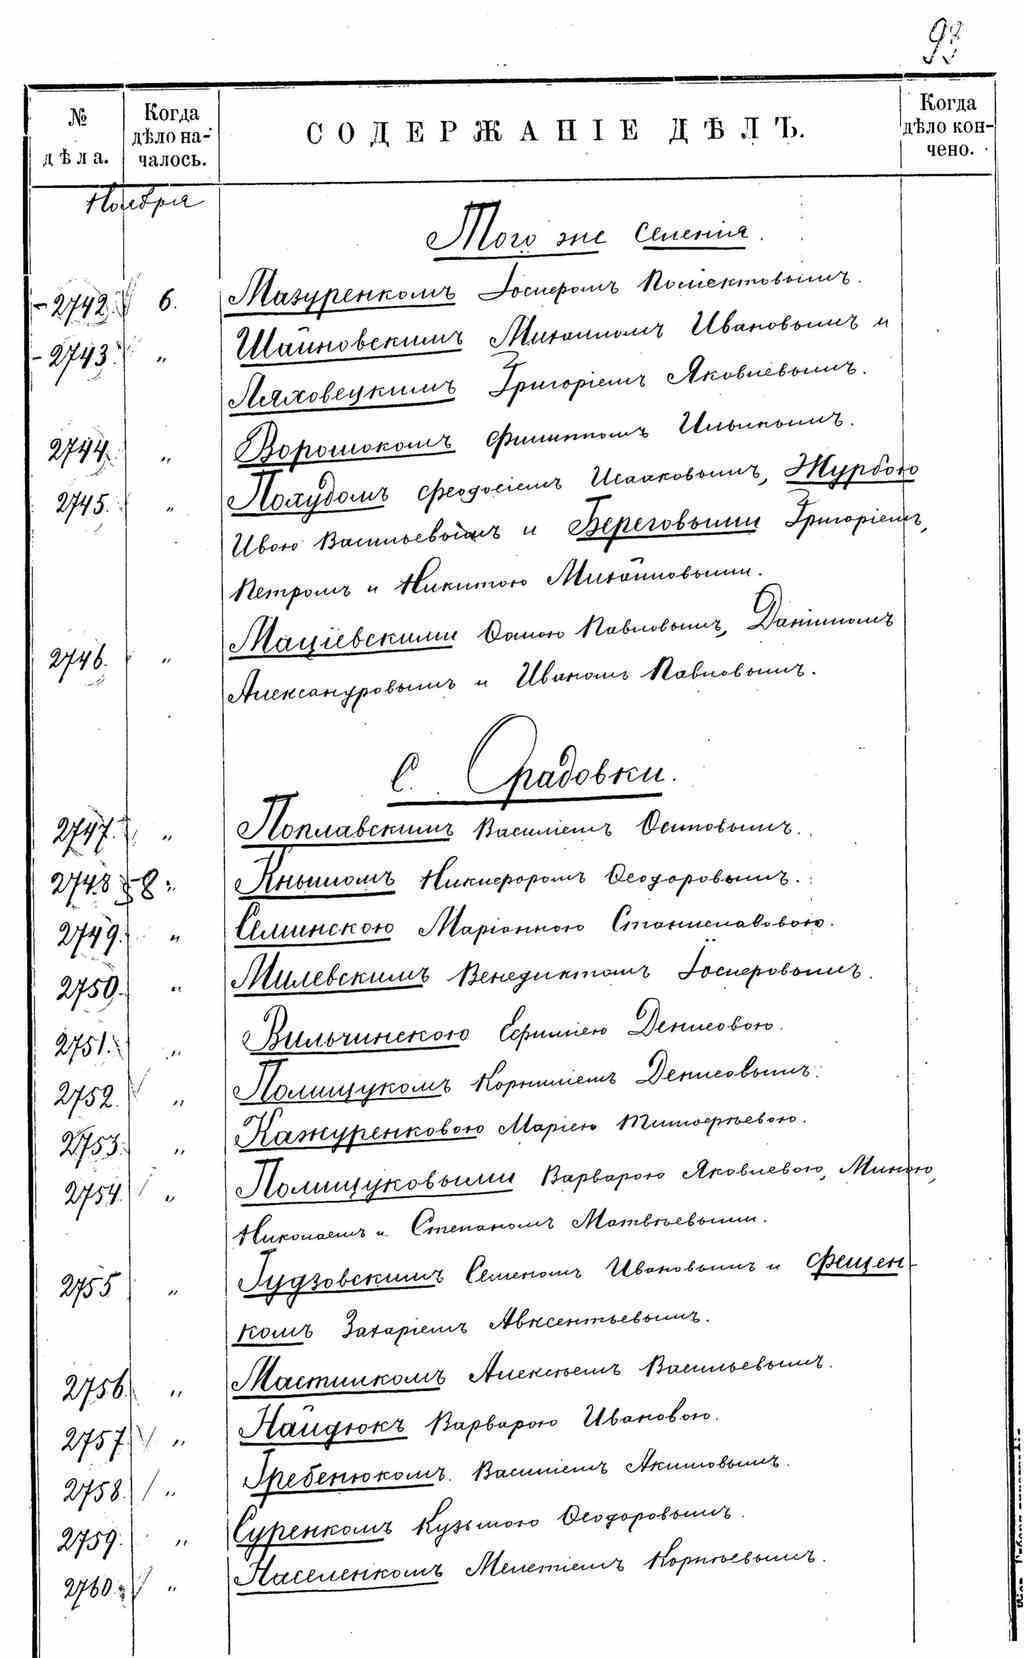 93
№ дѣла. Когда дѣло началось. СОДЕРЖАНІЕ ДѢЛЪ. Когда дѣло кончено.
Ноября
Того же селенія.
2742. 6. Мазуренкомъ Іосифомъ Полiектовымъ.
2743. „ Шайновскимъ Михаиломъ Ивановымъ и
Ляховецкимъ Григоріемъ Яковлевымъ.
2744. „ Ворошокомъ Филиппомъ Ильинымъ.
2745. „ Похудомъ Феодосіемъ Исааковымъ, Журбою
Ивою Васильевымъ и Береговыми Григоріемъ,
Петромъ и Никитою Михайловыми.
2746. „ Маціевскими Ѳомою Павловымъ, Даніиломъ
Александровымъ и Иваномъ Павловымъ.
С. Орадовки.
2747. „ Поплавскимъ Василіемъ Осиповымъ.
2748 8 „ Кнышомъ Никифоромъ Ѳеодоровымъ.
2749. „ Семинскою Маріанною Станиславовою.
2750. „ Милевскимъ Венедиктомъ Іосифовымъ.
2751. „ Вильчинскою Ефиміею Денисовою.
2752. „ Полищукомъ Корниліемъ Денисовымъ.
2753. „ Кажуренковою Маріею Тимофѣевою.
2754. „ Полищуковыми Варварою Яковлевою, Миною,
Николаемъ и Степаномъ Матвѣевыми.
2755 „ Гудзовскимъ Семеномъ Ивановымъ и Фещен-
комъ Захаріемъ Авксентьевымъ.
2756. „ Мастилкомъ Алексѣемъ Васильевымъ.
2757. „ Найдюкъ Варварою Ивановою.
2758. „ Гребенюкомъ Василіемъ Акимовымъ.
2759. „ Суренкомъ Кузьмою Ѳеодоровымъ.
2760. „ Населенкомъ Мелетіемъ Корнѣевымъ.